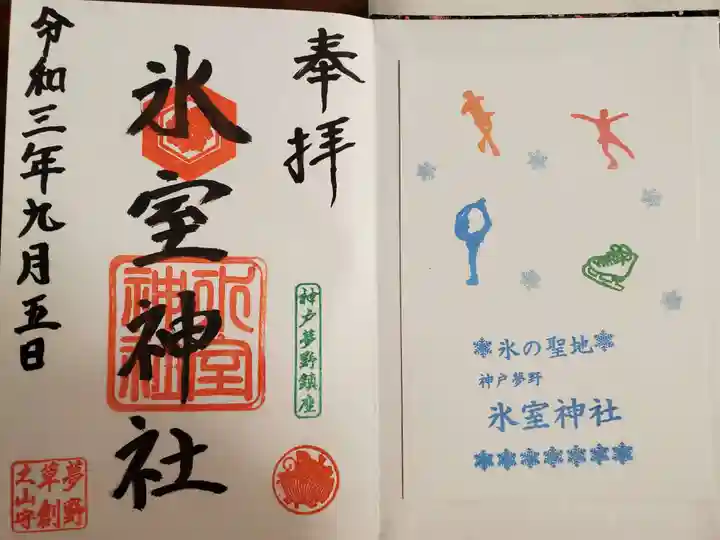 奉拝
氷室神社
氷室
神社
神戸夢野鎮座
令和三年九月五日
夢野
草創
之山守
氷の聖地
神戸夢野
氷室神社